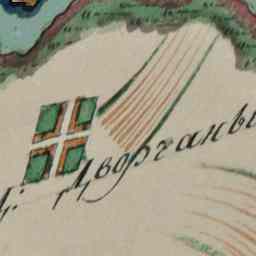 Дворчаны